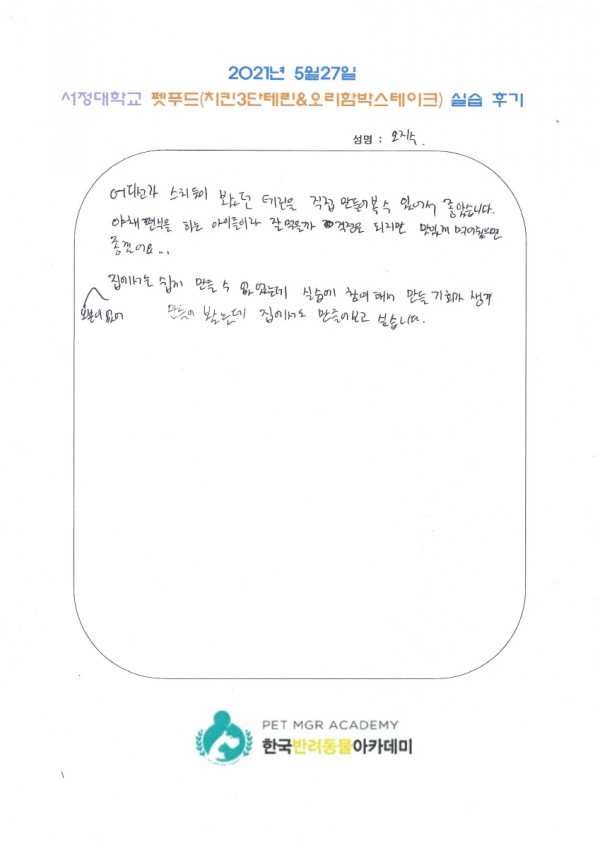 2021년 5월27일
서정대학교 펫푸드(치킨3단테린&오리함박스테이크) 실습 후기
성명 : 오지수.
어디선가 스치듯이 봤던 테린을 직접 만들어볼 수 있어서 좋았습니다.
야채 편식을 하는 아이들이라 잘 먹을까 걱정은 되지만 맛있게 먹어줬으면
좋겠어요...
집에서는 쉽게 만들 수 없었는데 실습에 참여해서 만들 기회가 생겨
오븐이 없어 만들어 봤는데 집에서도 만들어보고 싶습니다.
PET MGR ACADEMY
한국반려동물아카데미